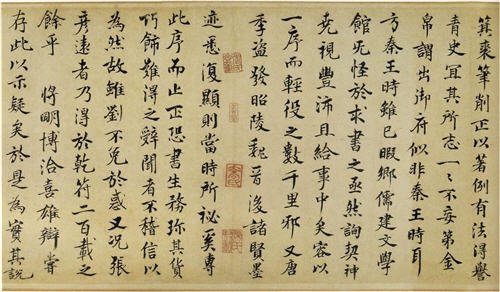 箕來筆削正以著例有法得譽
青史冝其所志一一不妄第金
帛謂出御府似非秦王時耳
方秦王時雖已暇鄉儒建文學
館旡怪於求書之亟然詢契神
堯視豐沛且給事中矣容以
一序而輕役之數千里邪又唐
季盜發昭陵魏晉後諸賢墨
迹悉復顯則當時所祕奚專
此序而止正恐書生務珎其貨
巧飾難得之辤聞者不稽信以
為然故雖劉不免於惑又况張
彥遠者乃得於乾符二百載之
餘乎 將明博洽喜雄辯嘗
存此以示疑矣於是為寳其說